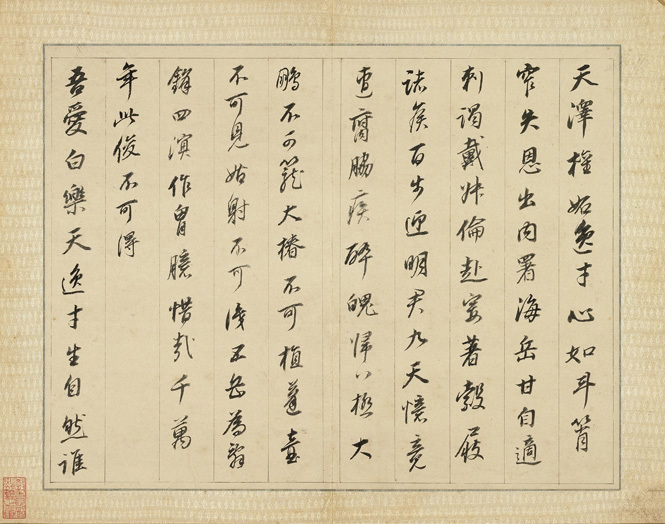 天澤權妬逸才心如斗筲
窄失恩出內署海岳甘自適
刺謁戴赴宴著縠屐
諸侯百步迎明君九天憶竟
遭腐脇疾醉魄歸八極大
鵬不可籠大椿不可植蓬壺
不可見姑射不可識五岳為辭
鋒四溟作胷臆惜哉千萬
年此俊不可得
吾愛白樂天逸才生自然誰